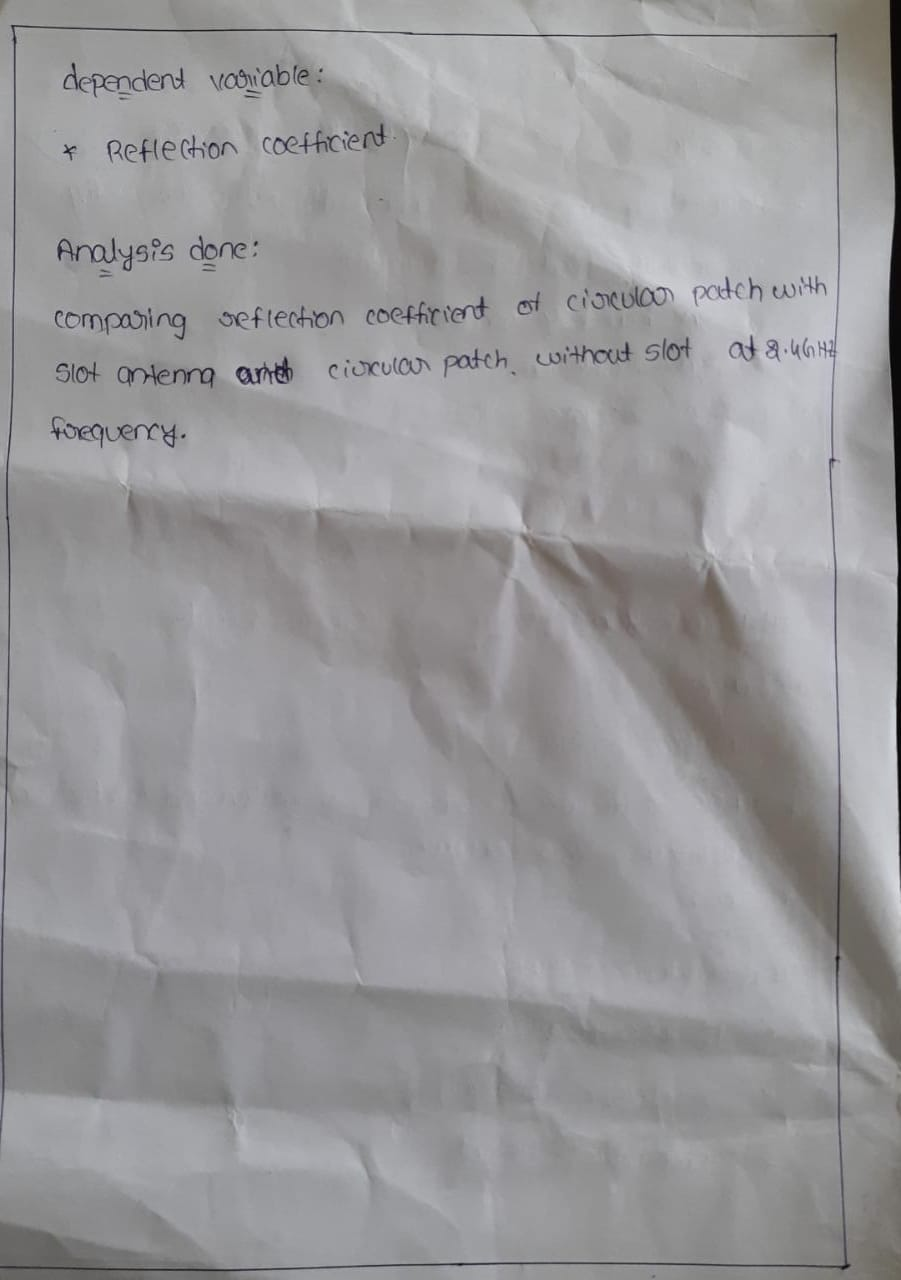 dependent variable:
* Reflection coefficient.
Analysis done:
comparing reflection coefficient of circular patch with
slot antenna and circular patch. without slot at 2.4GHz
frequency.